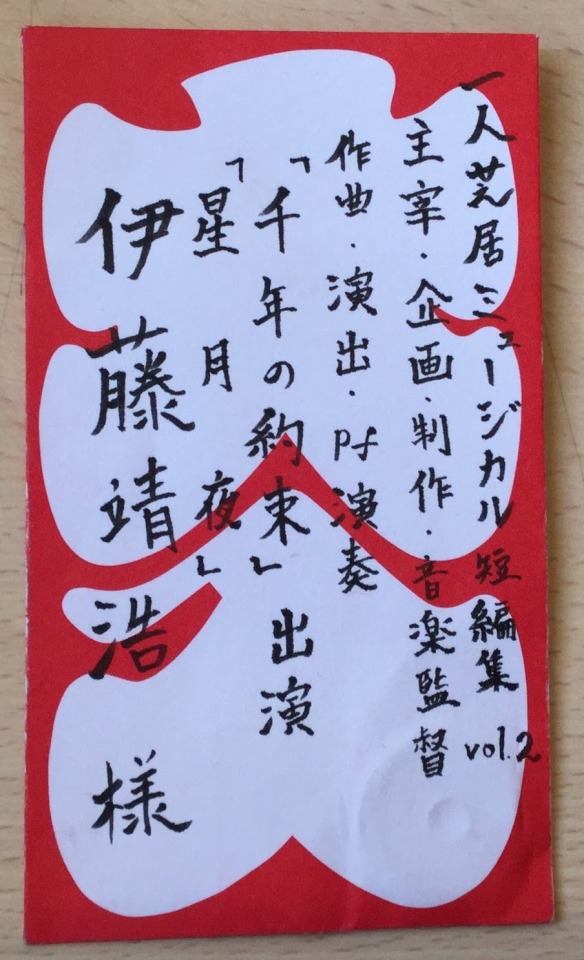 一人芝居ミュージカル短編集 vol.2
主宰・企画・制作・音楽監督
作曲・演出・pf演奏
「千年の約束」出演
「星月夜」
伊藤靖浩様